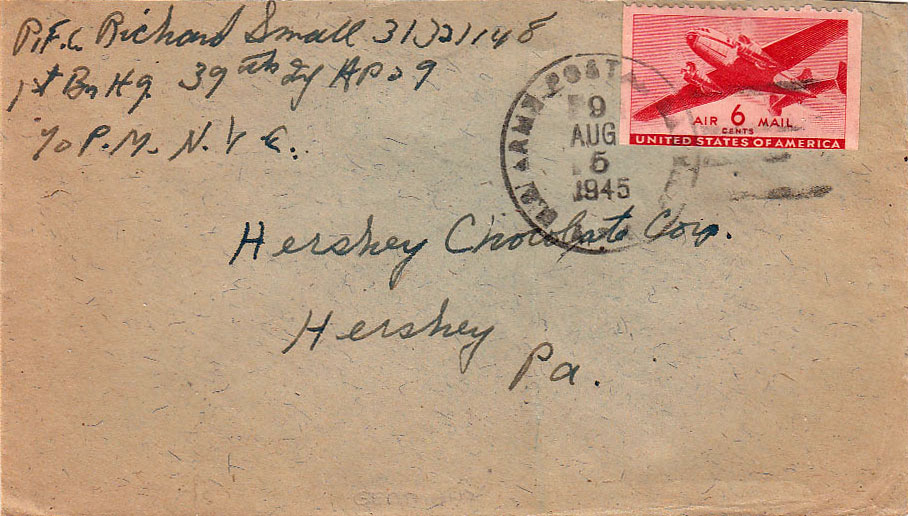 P.F.C. Richard Small 31321148
1st Bn Hq. 39th Inf APO 9
% P.M. N.Y.C.
U.S. ARMY POSTAL
9
AUG
5
1945
AIR 6 MAIL
CENTS
UNITED STATES OF AMERICA
Hershey Chocolate Corp.
Hershey
Pa.